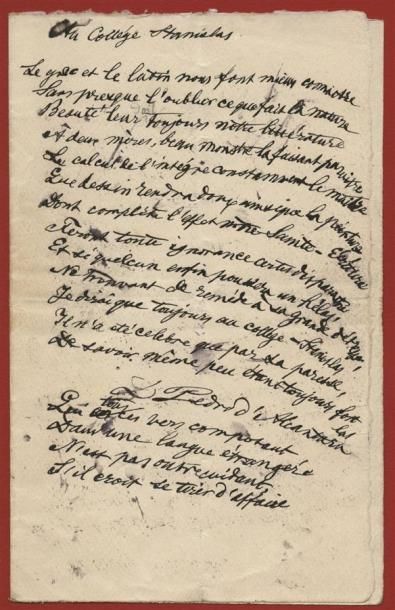 Au Collége Stanislas.
Le grec et le latin nous font mieux connaitre
Sans presque l'oublier ce que fait la nature
Beauté leur toujours notre littérature
A deux mères, beau monstre la faisant
Le calcul de l'intégre constamment le
Que dessin rendra donc ainsi que la peinture
Dont complète l'effet notre Sainte-Ecriture
Feront toute ignorance certes disparaitre
Et si quelcun enfin poussa un hélas
Ne trouvant de remède à sa grande
Je dirai que toujours au collége Stanislas
Il n'a été célèbre que par sa paresse,
De savoir même peu étant toujours fort las
D. Pedro d'Alcantara
Qui vers composant
Dans une langue étrangère
N'est pas outrecuidant,
S'il croit se tirer d'affaire